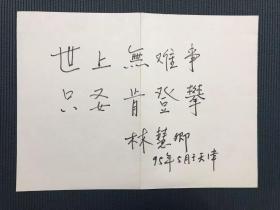 世上無难事
只要肯登攀
林慧卿
95年5月于天津